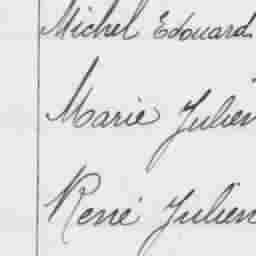 Michel Edouard
Marie Julien
René Julien